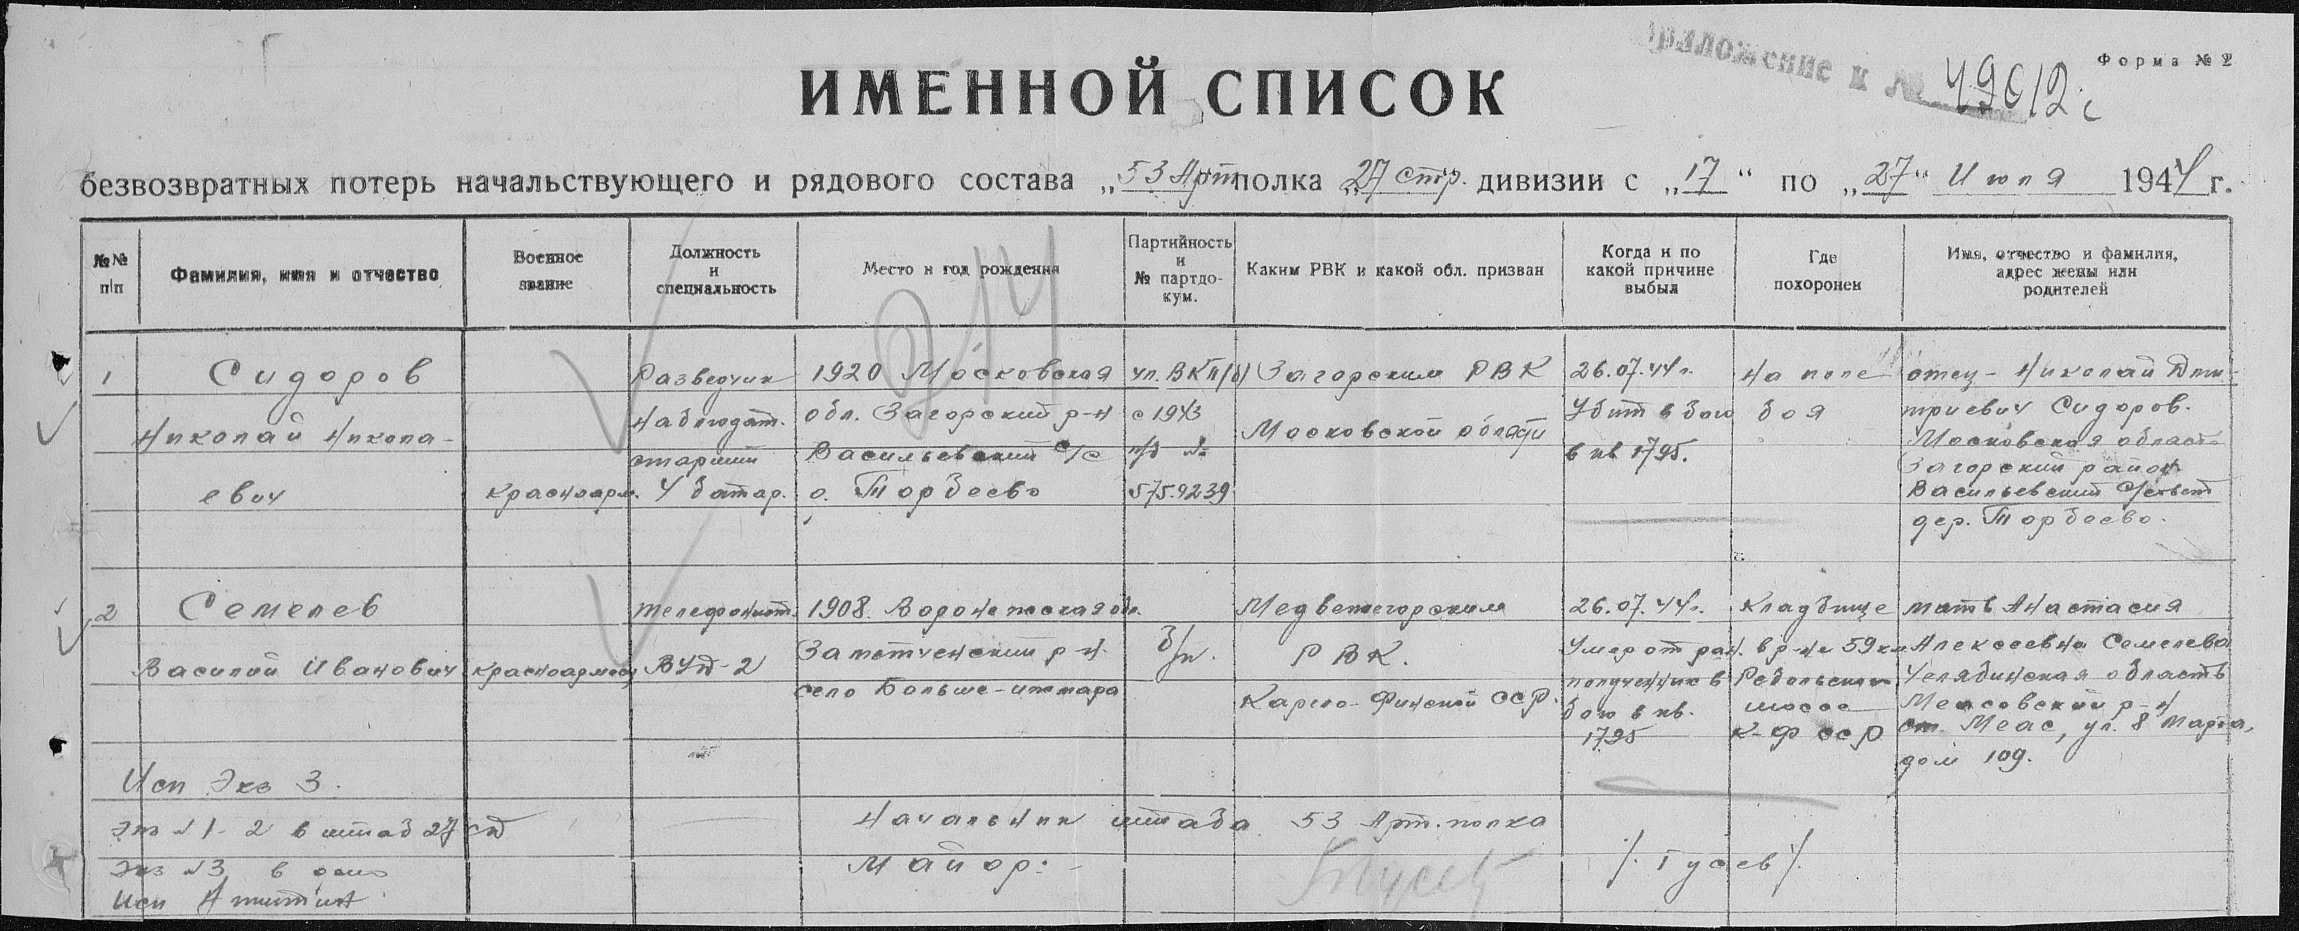 Приложение к № 49012с
Форма № 2
ИМЕННОЙ СПИСОК
безвозвратных потерь начальствующего и рядового состава „53 Арт полка „27 стр. дивизии с „17“ по „27“ Июля 1944 г.
№№ п/п
Фамилия, имя и отчество
Военное
звание
Должность
и
специальность
Место и год рождения
Партийность
и
№ партдо-
кум.
Каким РВК и какой обл. призван
Когда и по
какой причине
выбыл
Где
похоронен
Имя, отчество и фамилия,
адрес жены или
родителей
214
1
Сидоров
Николай Никола-
евич
красноарм.
Разведчик
наблюдат.
старший
4 батар.
1920 Московская
обл. Загорский р-н
Васильевский с/с
д. Торбеево
чл. ВКП(б)
с 1943
п/б №
5759239
Загорским РВК
Московской области
26.07.44 г.
Убит в бою
в кв 1795.
На поле
боя
отец - Николай Дми-
триевич Сидоров.
Московская область
Загорский район
Васильевский с/совет
дер. Торбеево.
2
Семелев
Василий Иванович
красноармеец
телефонист.
ВУД-2
1908 Воронежская обл.
Заметченский р-н
село Больше-ижмора
б/п.
Медвежегорским
РВК.
Карело-Финской ССР.
26.07.44 г.
Умер от ран.
полученных в
бою в кв.
1795
Кладбище
в р-не 59 км
Ребольское
шоссе
К-Ф ССР
мать Анастасия
Алексеевна Семелева
Челябинская область
Меасовский р-н
ст. Меас, ул. 8 Марта,
дом 109.
Исп Экз 3.
Экз №1-2 в штаб 27 сд
Экз №3 в дело
Исп
Начальник штаба 53 Арт. полка
Майор:
/Гусев/